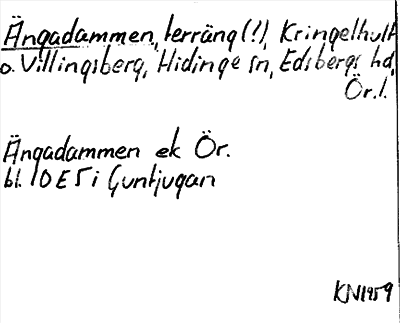 Ängadammen, terräng(!), Kringelhult
o. Villingsberg, Hidinge sn, Edsbergs hd,
Ör.l.
Ängadammen ek Ör.
bl. 10E5i
KN1959